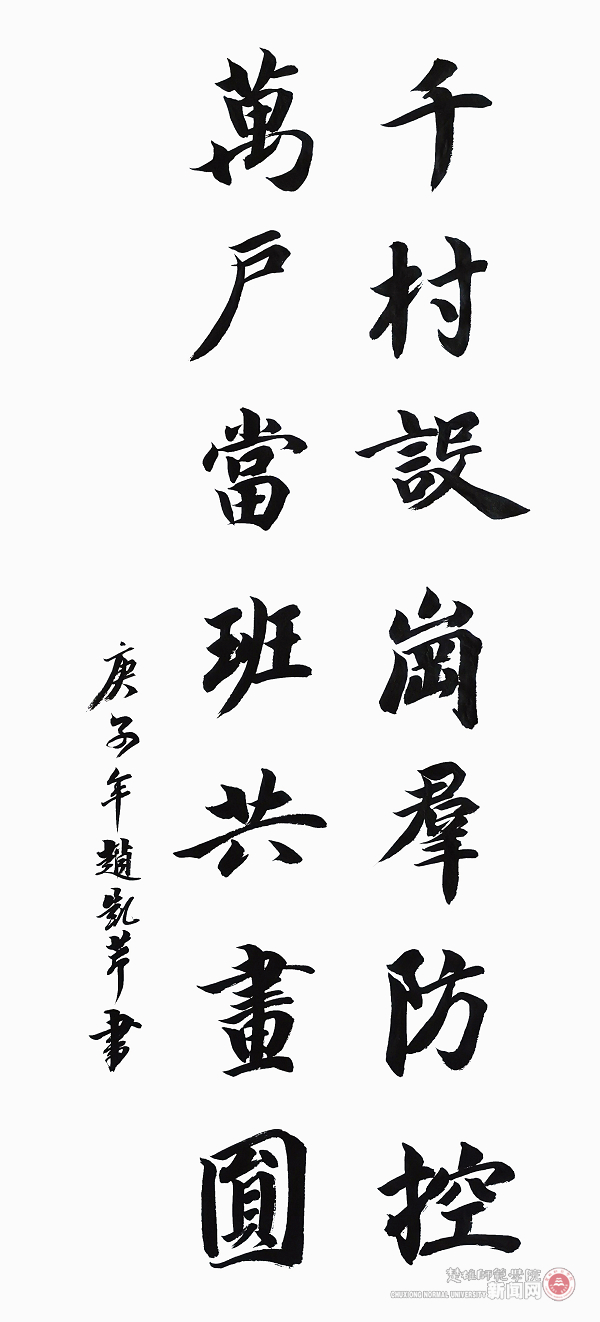 千村設崗羣防控
萬戶當班共畫圓
庚子年趙凱芹書
楚雄師範學院
CHUXIONG NORMAL UNIVERSITY
新闻网